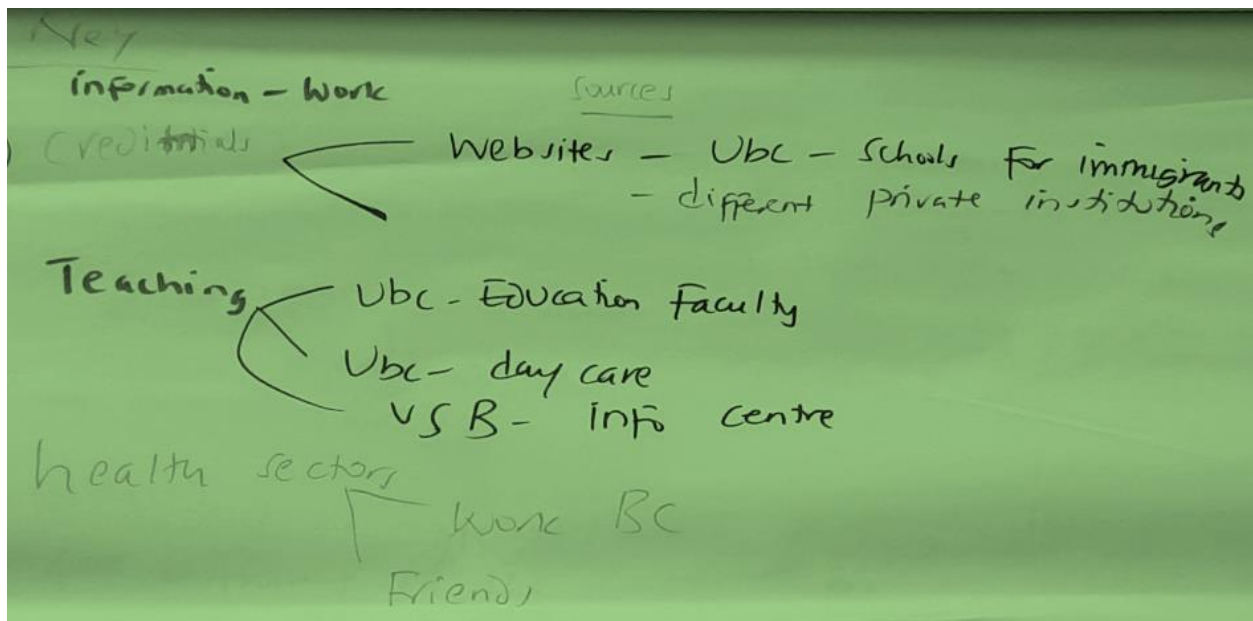 Key
information - Work
Sources
Creditntials
Websites - Ubc - Schools For immigrants
- different private institutions
Teaching
Ubc - Education Faculty
Ubc - day care
VSB - info centre
health sectors
Work BC
Friends